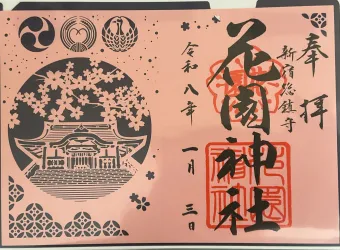 奉拝
新宿総鎮守
花園神社
令和八年
一月三日